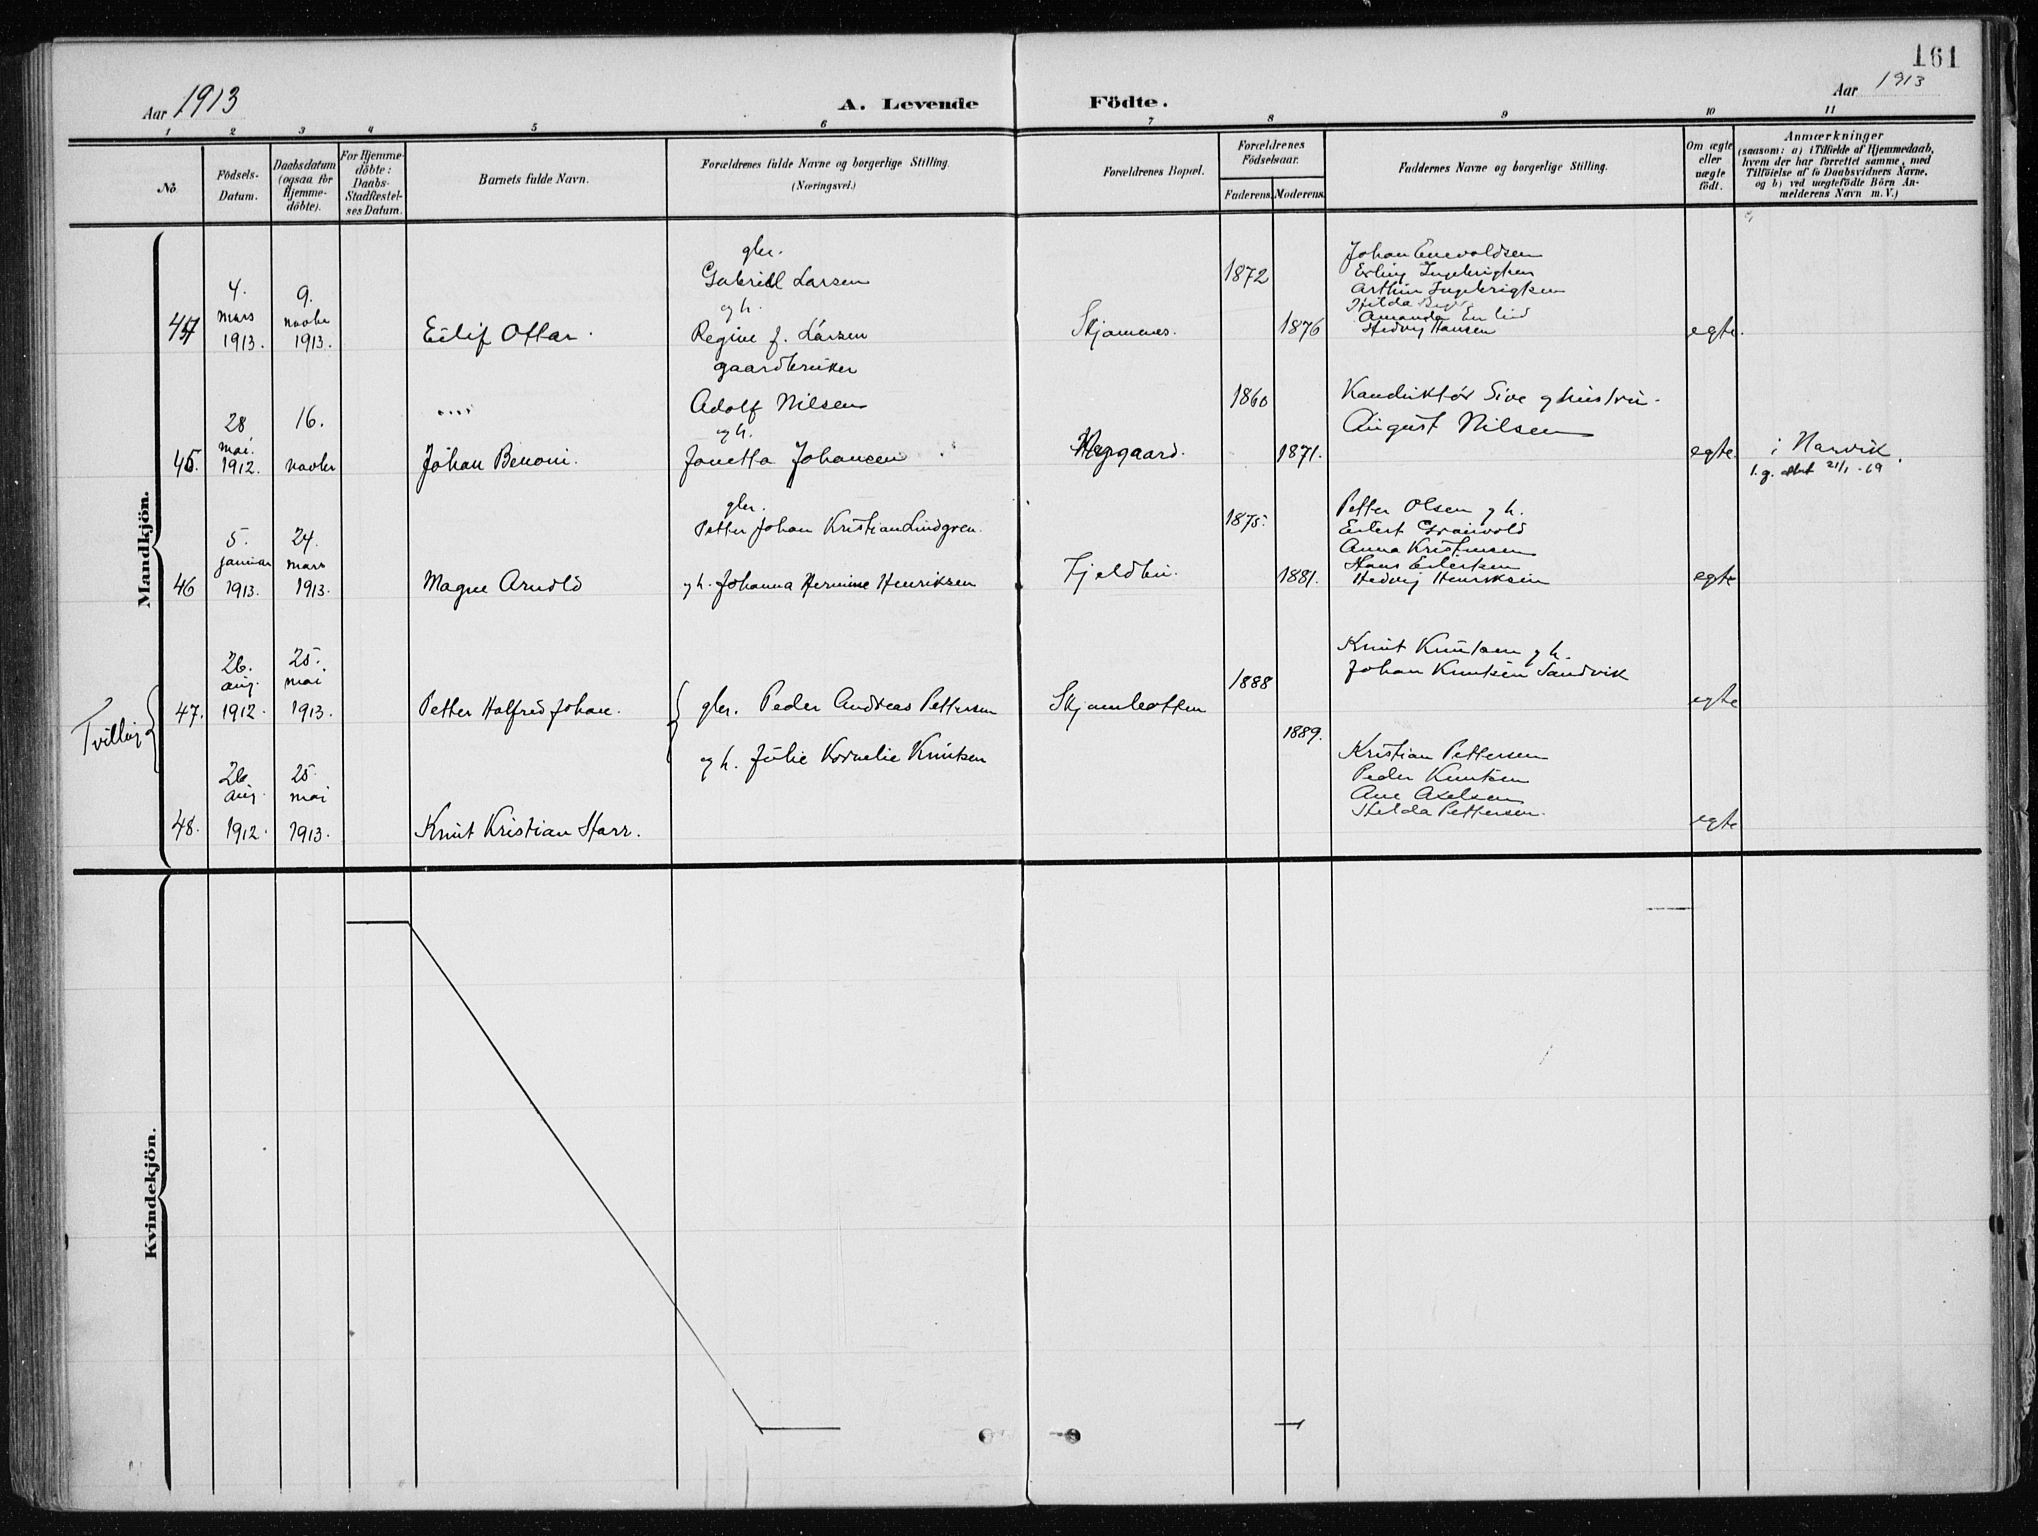 161
Aar 1913
A. Levende Födte.
Aar 1913
1 2 3 4 5 6 7 8 9 10 11
No.
Födsels-
Datum.
Daabsdatum
(ogsaa for
Hjemme-
döbte).
For Hjemme-
döbte:
Daabs-
Stadfæstel-
ses Datum.
Barnets fulde Navn.
Forældrenes fulde Navne og borgerlige Stilling.
(Næringsvei.)
Forældrenes Bopæl.
Forældrenes
Födselsaar.
Faderens. Moderens.
Faddernes Navne og borgerlige Stilling.
Om ægte
eller
uægte
født.
Anmærkninger
(saasom: a) i Tilfælde af Hjemmedaab,
hvem der har forrettet samme, med
Tilföielse af to Daabsvidners Navne,
og b) ved uægtefödte Börn An-
melderens Navn m. V.)
Mandkjön.
4.
mars
1913.
9.
novbr
1913.
Eilif Ottar.
gbr.
Gabriel Larsen
og h.
Regine f. Larsen
Skjomnes.
1872
1876
Johan Enevoldsen
Erling Ingebrigtsen
Arthur Ingebrigtsen
Hilda
Amanda
Hedvig Hansen
egte.
45.
28
mai.
1912.
16.
novbr
....
Johan Benoni.
gaardbruker
Adolf Nilsen
og h.
Jonetta Johansen
1860
1871.
Konduktør Sive og hustru.
August Nilsen
egte
i Narvik.
l.g. attest 21/1-69
46
5.
januar
1913.
24.
mars
1913.
Magne Arnold
gbr.
Petter Johan Kristian Lindgren.
og h. Johanna Hermine Henriksen
Fjeldbu.
1875.
1881.
Petter Olsen og h.
Eilert Grønvold
Anna Kristensen
Hans Eilertsen
Hedvig Henriksen
egte
Tvilling
47.
26.
aug.
1912.
25.
mai
1913.
Petter Halfred Johan.
gbr. Peder Andreas Pettersen
og h. Julie Kornelie Knutsen
Skjombotten
1888
1889.
Knut Knutsen og h.
Johan Knutsen Sandvik
egte
48.
26
aug.
1912.
25.
mai
1913.
Knut Kristian Starr.
Kristian Pettersen
Peder Knutsen
Ane Axelsen
Hilda Pettersen.
egte
Kvindekjön.